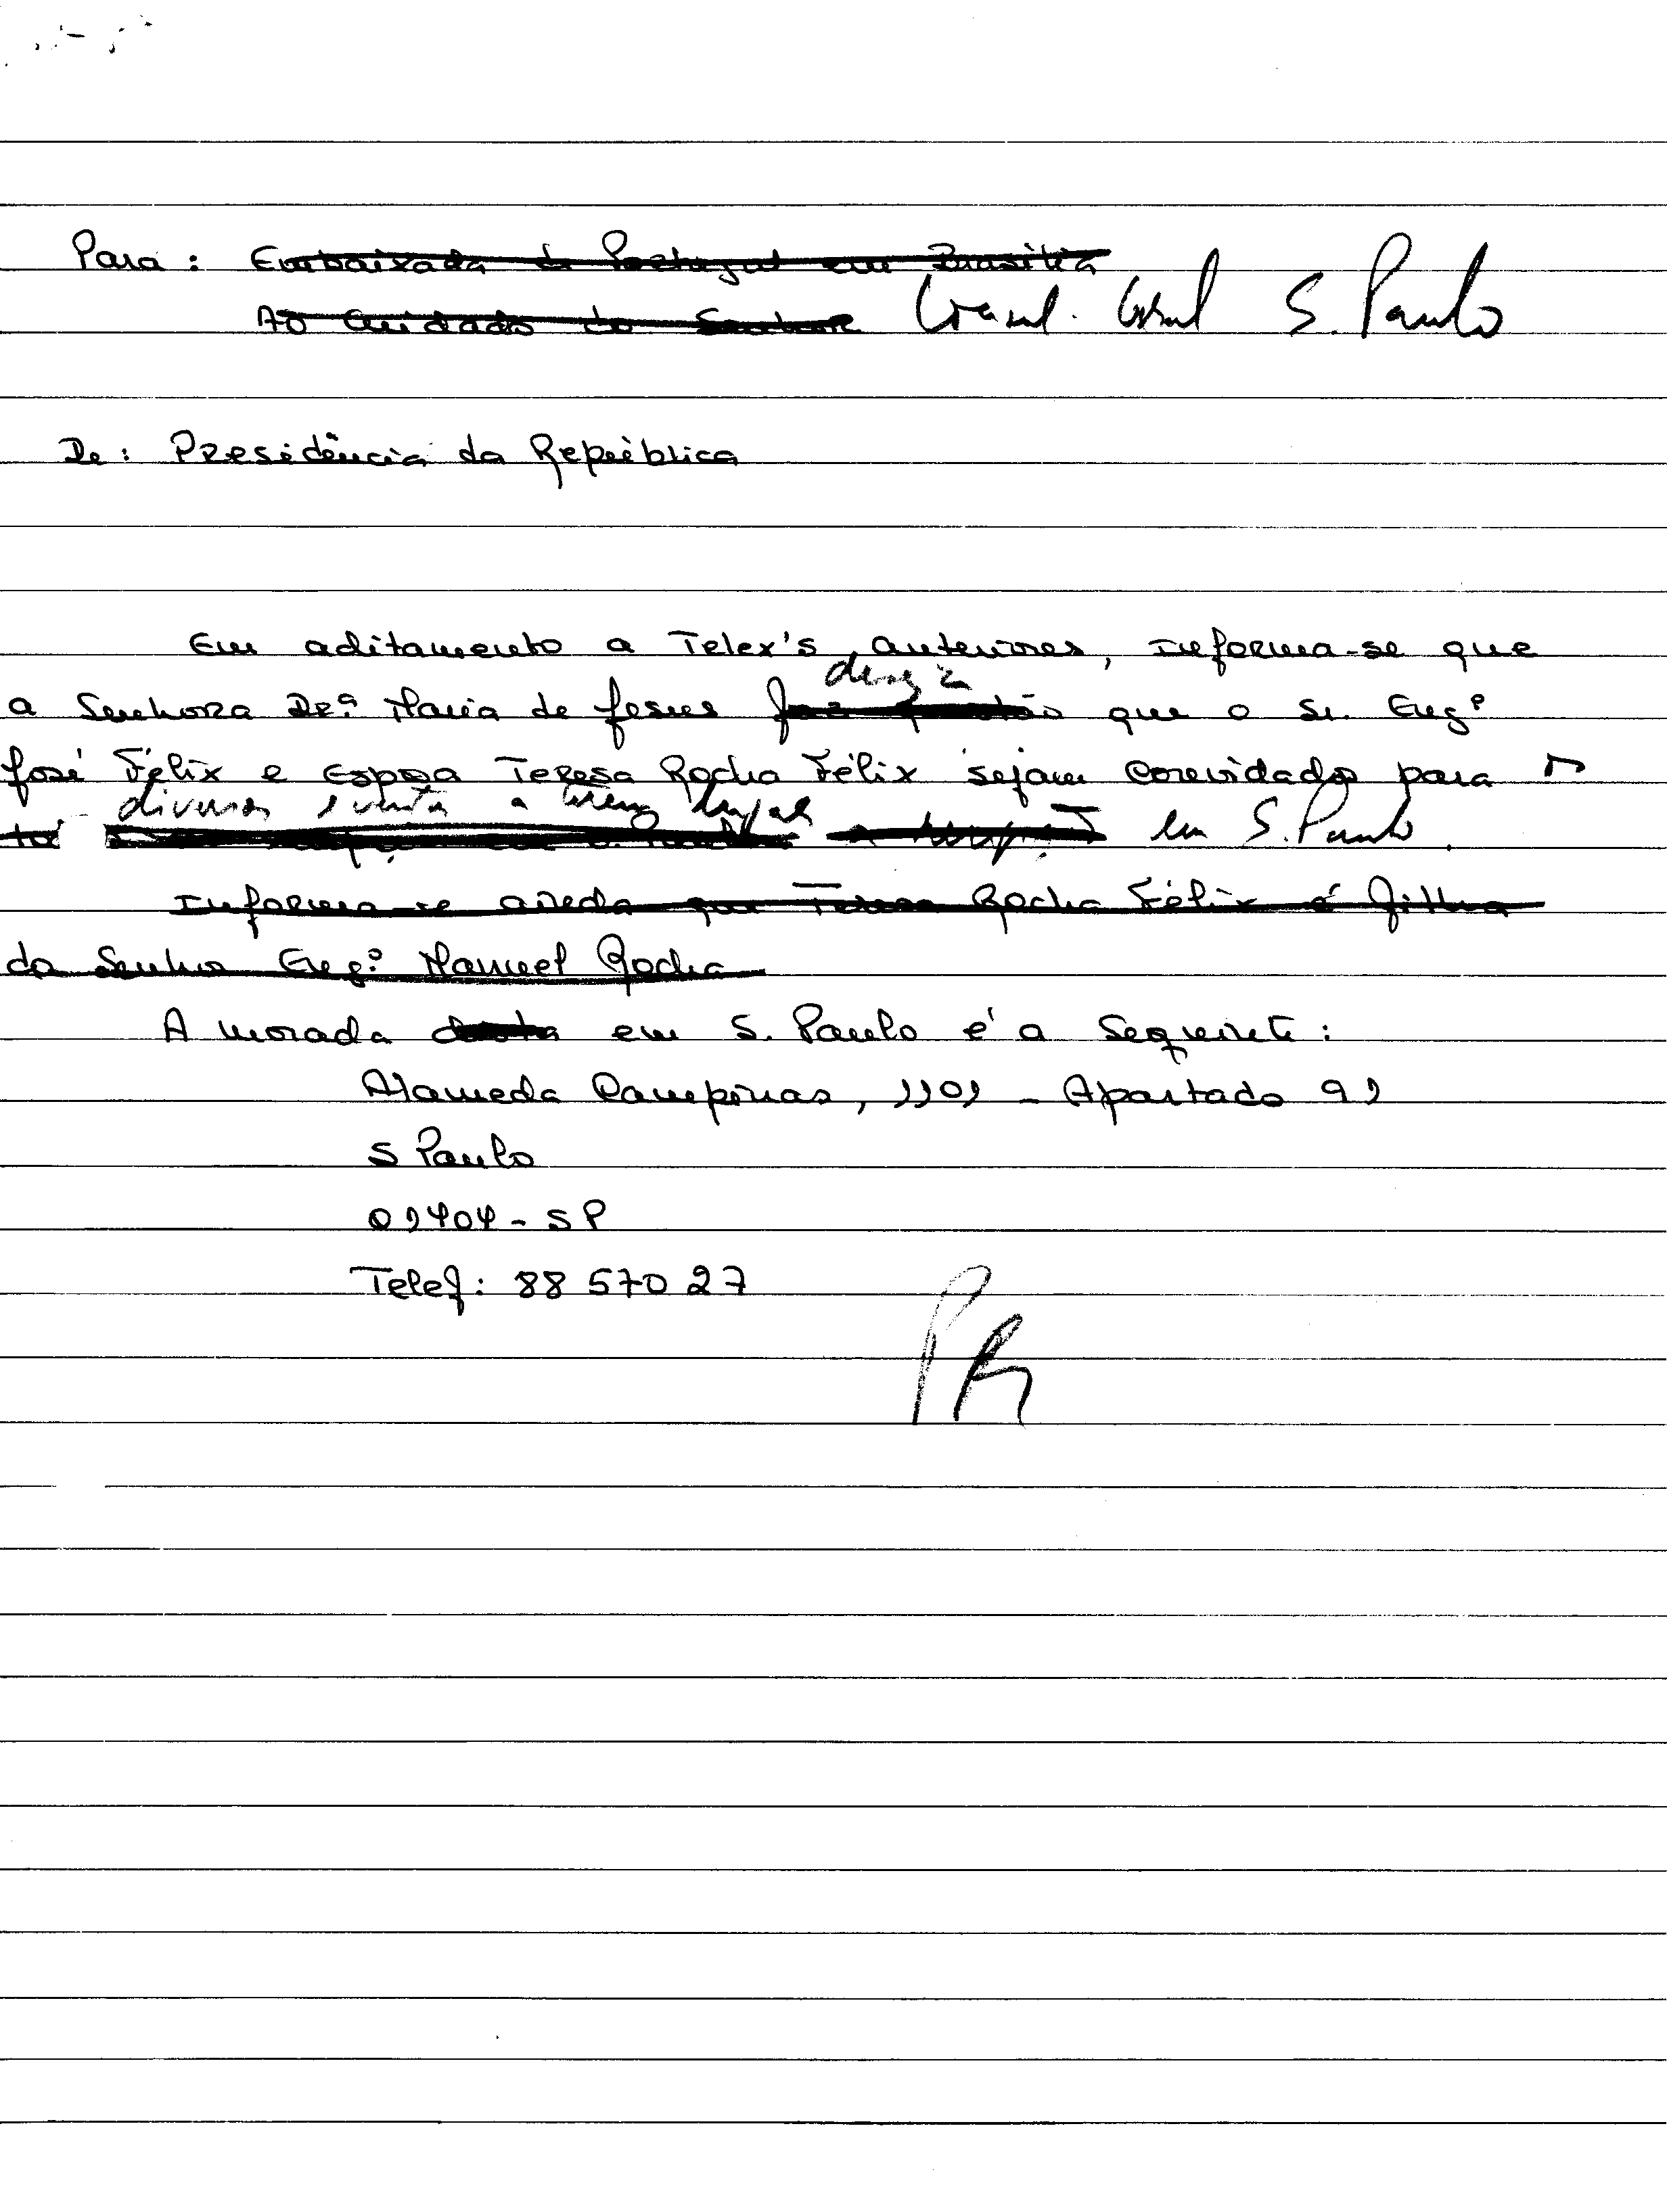 Para : Embaixada de Portugal em Brasilia
Ao Cuidado do Senhor Consul. Geral S. Paulo
De : Presidência da República
Em aditamento a Telex's anteriores, informa-se que
deseja
a Senhora Drª Maria de Jesus faz questão que o Sr. Engº
José Félix e Esposa Teresa Rocha Félix sejam convidados para
diversos eventos a terem lugar
em S. Paulo.
Informa-se ainda que Teresa Rocha Félix é filha
do Senhor Engº Manuel Rocha
A morada desta em S. Paulo é a seguinte :
Alameda Campinas, 1101 - Apartado 91
S Paulo
01404 - SP
Telef : 88 570 27
PR